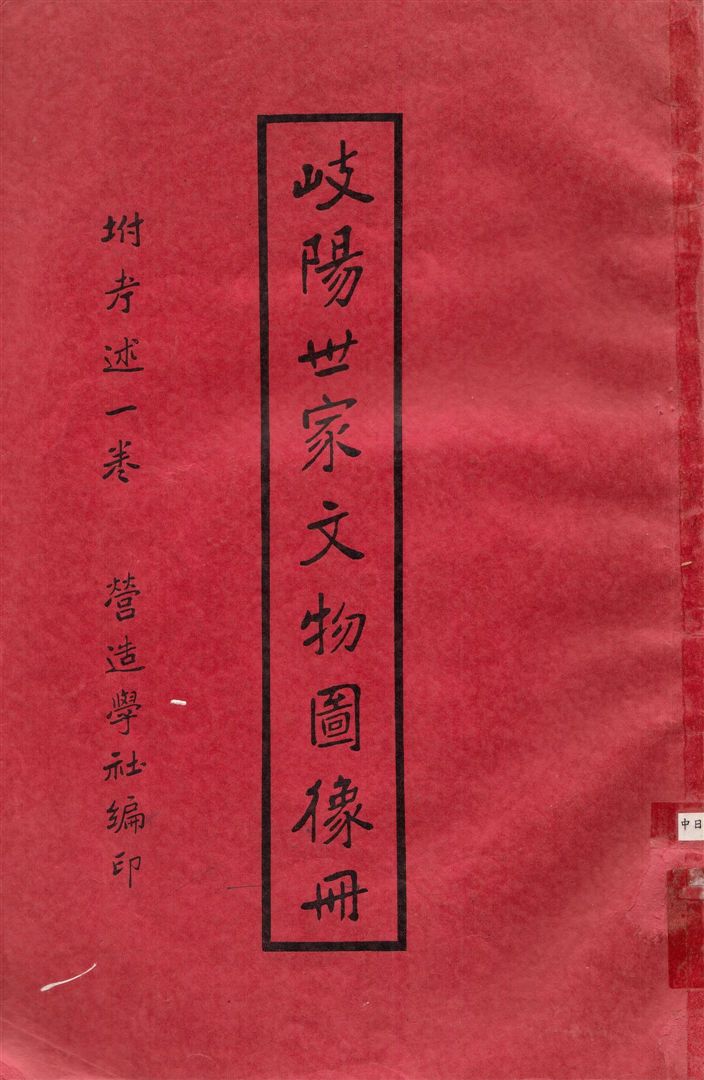 岐陽世家文物圖像冊
坿考述一卷 營造學社編印
中日